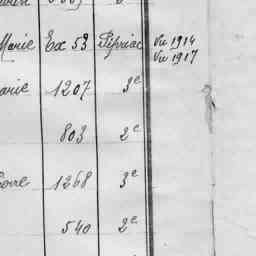 Marie Ex 53 Pipriac Vu 1914
Vu 1917
arie 1207 3e
803 2e
1268 3e
540 2e